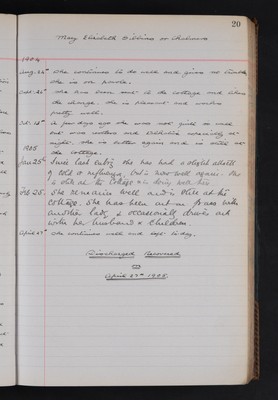 20
Mary Elizabeth
1904
Aug. 24th She continues to do well and gives no trouble
She is on parole.
She has been sent to the cottage and likes
the change. She is pleasant and works
pretty well.
A few days ago she was not quite so well
and was restless and
night. She is better again and is still at
the cottage.
1905
Jan 25th Since last entry she has had a slight attack
of cold or influenza, but is now well again. She
is still at the Cottage & is doing well here.
Feb 25. She remains well and is still at the
Cottage. She has been out on pass with
another lady, & occasionally drives out
with her husband & children.
April 27th She continues well and left to-day.
Discharged Recovered
April 27th 1905.